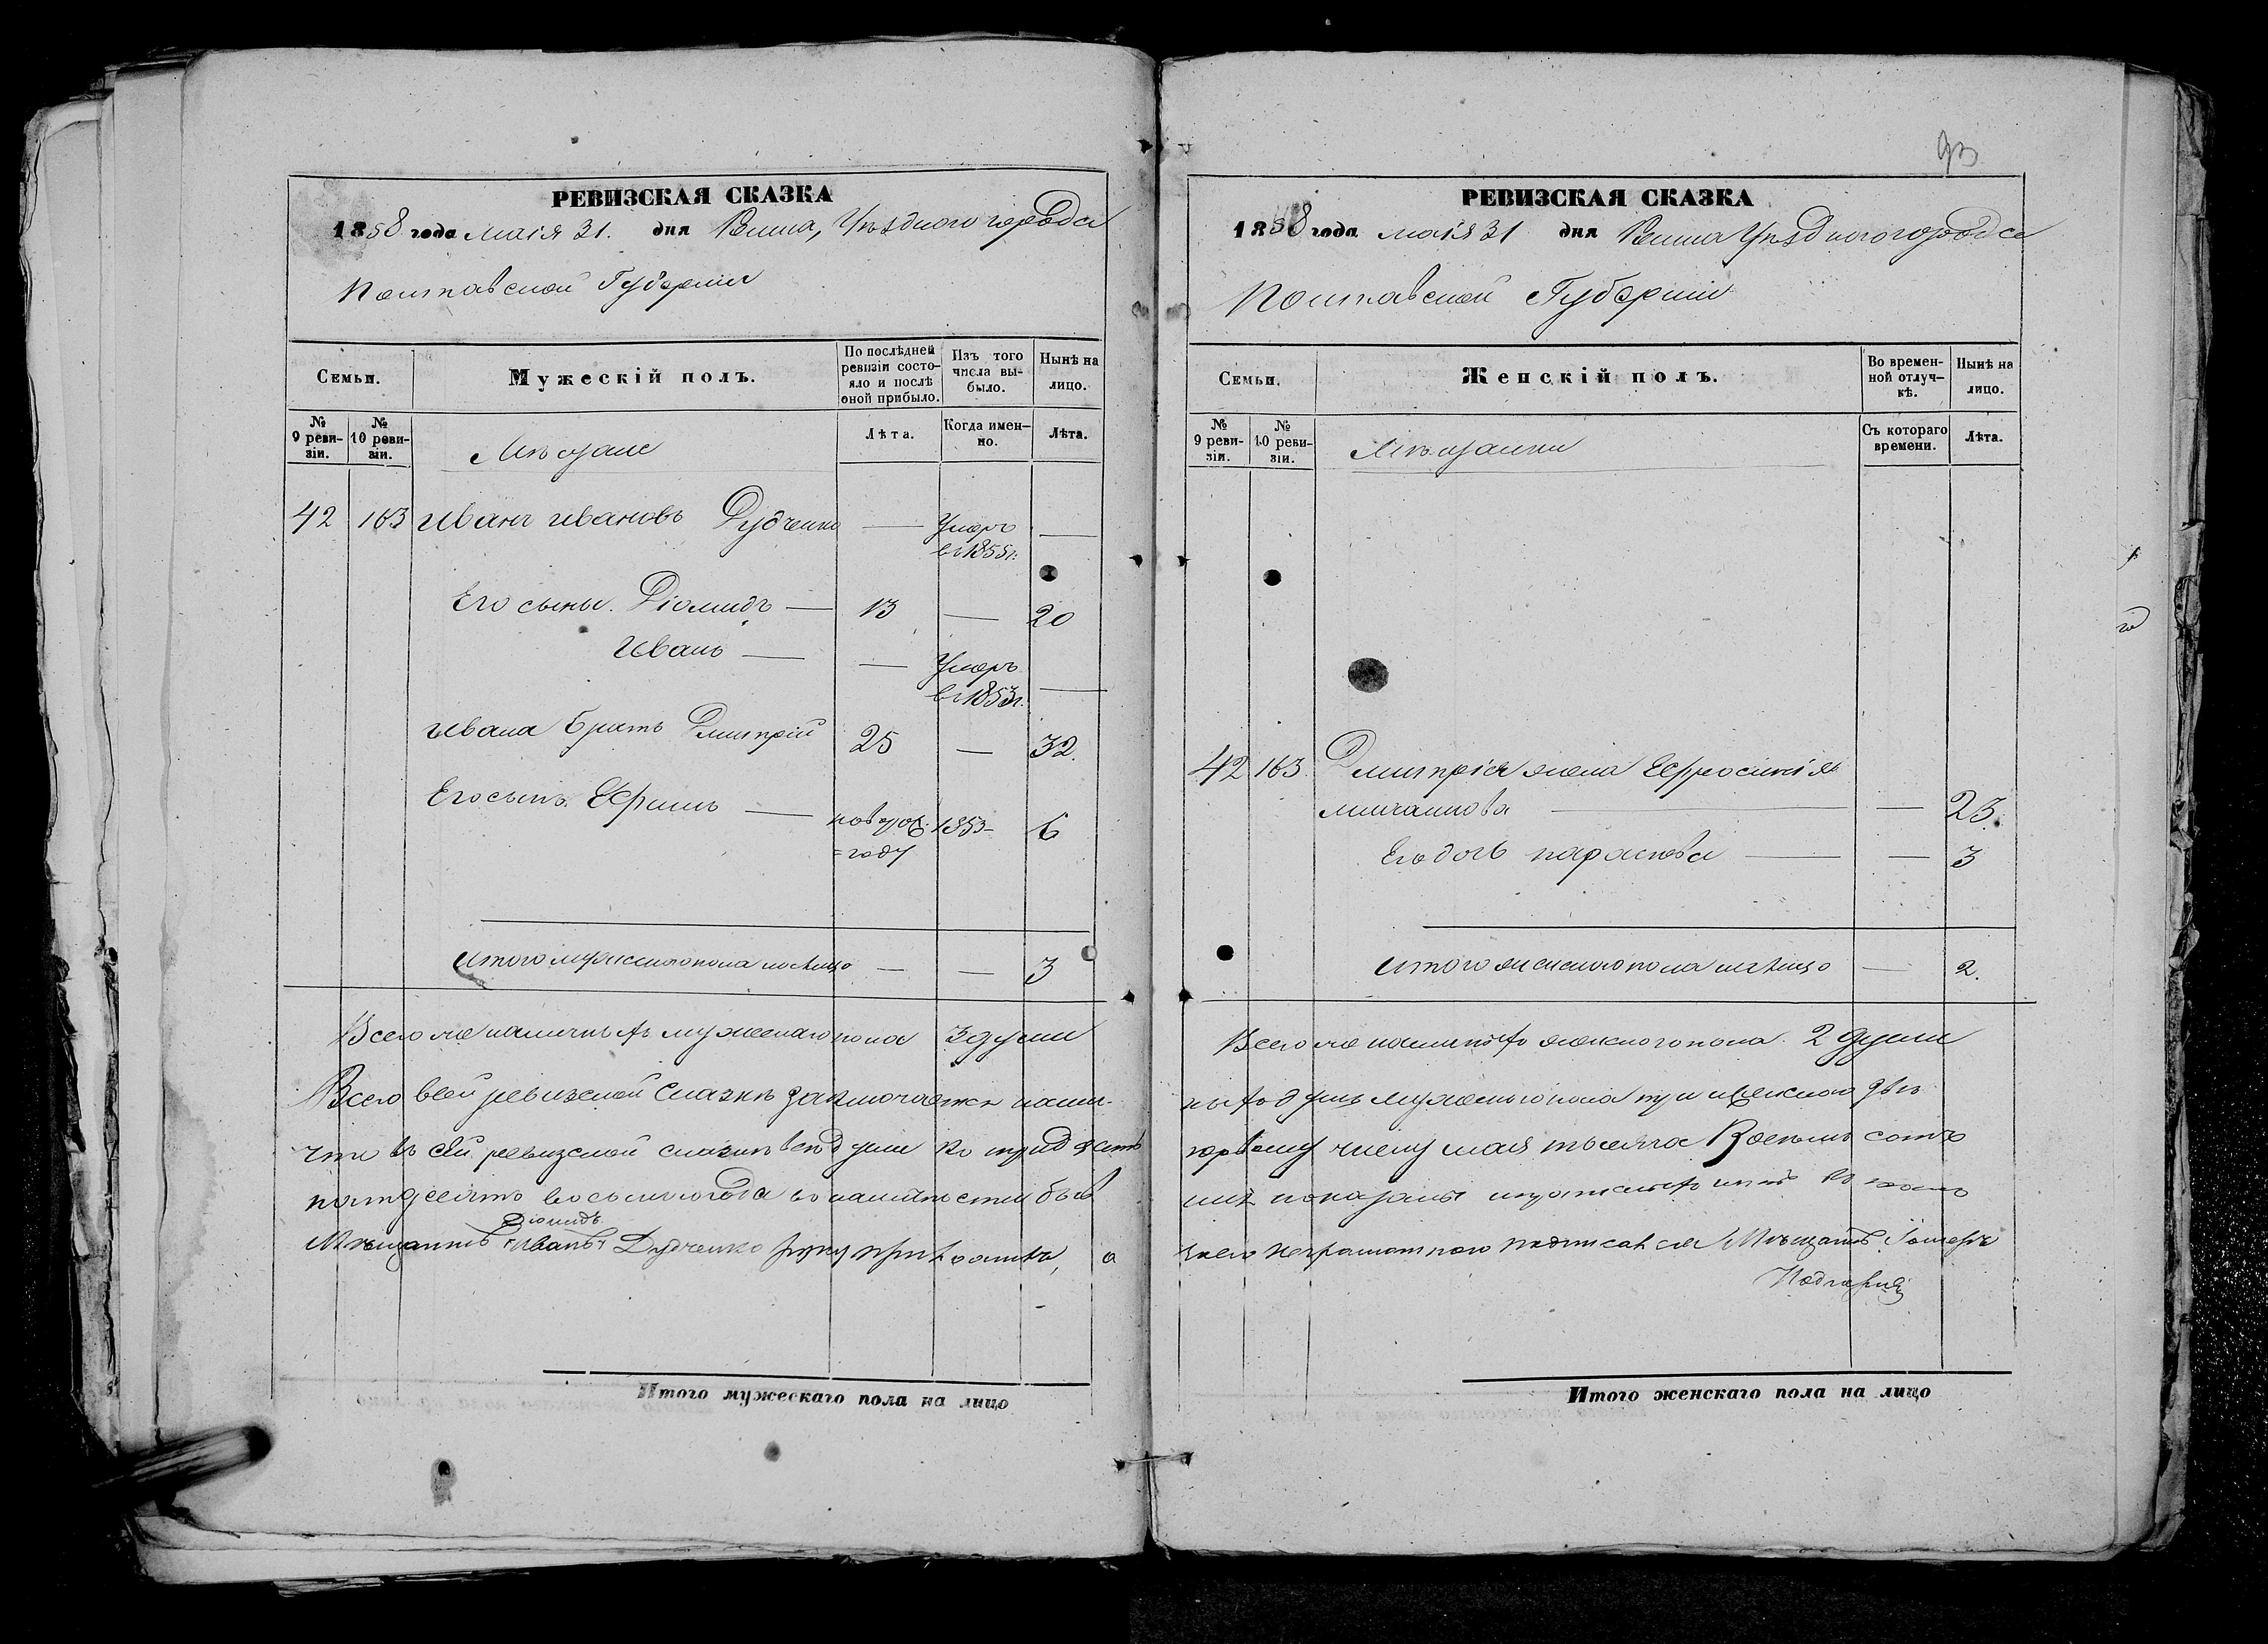 93
РЕВИЗСКАЯ СКАЗКА
1858 года маія 31. дня Уѣзднаго города
Полтавской Губерніи
Семьи.
Мужескій полъ.
По послѣдней ревизіи состояло и послѣ оной прибыло.
Изъ того числа выбыло.
Нынѣ на лицо.
№ 9 ревизіи.
№ 10 ревизіи.
Мѣщане
Лѣта.
Когда именно.
Лѣта.
42 163 Иванъ Ивановъ Дудченко — Умеръ —
въ 1855г.
Его сыны. Діомидъ — 13 — 20
Иванъ — — Умеръ
въ 1853г. —
Ивана братъ Дмитрій 25 — 32.
Его сынъ Ефимъ — 1853 6
=году
Итого мужескаго пола на лицо — — 3
Всего на мужескаго пола 3 души
Всего въ сей ревизской сказкѣ заключается
что въ сей ревизской сказкѣ всѣ души
пятдесятъ восьмого года
Діомидъ
Мѣщанинъ Иванъ Дудченко руку приложилъ, а
Итого мужескаго пола на лицо
РЕВИЗСКАЯ СКАЗКА
1858 года маія 31 дня Уѣзднаго города
Полтавской Губерніи
Семьи.
Женскій полъ.
Во временной отлучкѣ.
Нынѣ на лицо.
№ 9 ревизіи.
№ 10 ревизіи.
Мѣщанки
Съ котораго времени.
Лѣта.
42 163. Дмитрія жена Ефросинія
— — 23.
Его дочь Параскева — — 3
Итого женскаго пола на лицо — 2.
Всего на женскаго пола. 2 души
душъ мужескаго пола три и женскаго двѣ
первому числу мая тысяча Восемь сотъ
показаны
него неграмотнаго подписался Мѣщанинъ
Итого женскаго пола на лицо